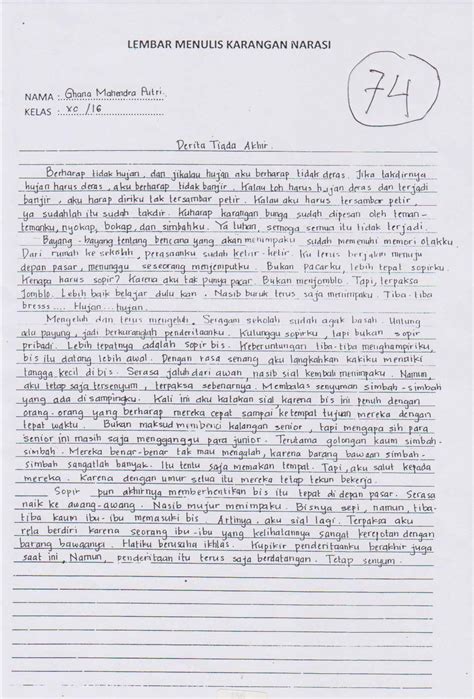 LEMBAR MENULIS KARANGAN NARASI
74
NAMA : Ghana Mahendra Putri.
KELAS : XC /16
Derita Tiada Akhir.
Berharap tidak hujan, dan jikalau hujan aku berharap tidak deras. Jika takdirnya
hujan harus deras, aku berharap tidak banjir. Kalau toh harus hujan deras dan terjadi
banjir, aku harap diriku tak tersambar petir. Kalau aku harus tersambar petir,
ya sudahlah itu sudah takdir. Kuharap karangan bunga, sudah dipesan oleh teman-
temanku, nyokap, bokap, dan simbahku. Ya tuhan, semoga semua itu tidak terjadi.
Bayang-bayang tentang bencana yang akan menimpaku sudah memenuhi memori otakku.
Dari rumah ke sekolah, perasaanku sudah ketir-ketir. Ku terus berjalan menuju
depan pasar, menunggu seseorang menjemputku. Bukan pacarku, lebih tepat sopirku.
Kenapa harus sopir? Karena aku tak punya pacar. Bukan menjomblo. Tapi, terpaksa
Jomblo. Lebih baik belajar dulu kan. Nasib buruk terus saja menimpaku. Tiba-tiba
bresss.... Hujan... hujan.
Mengeluh dan terus mengeluh. Seragam sekolah sudah agak basah. Untung
ada payung, jadi berkuranglah penderitaanku. Kutunggu sopirku, tapi bukan sopir
pribadi. Lebih tepatnya adalah sopir bis. Keberuntungan tiba-tiba menghampiriku,
bis itu datang lebih awal. Dengan rasa senang aku langkahkan kakiku menaiki
tangga kecil di bis. Serasa jatuh dari awan, nasib sial kembali menimpaku. Namun,
aku tetap saja tersenyum, terpaksa sebenarnya. Membalas senyuman simbah-simbah
yang ada di sampingku. Kali ini aku katakan sial, karena bis ini penuh dengan
orang-orang yang berharap mereka cepat sampai ke tempat tujuan mereka dengan
tepat waktu. Bukan maksud membenci kalangan senior, tapi mengapa sih para
senior ini masih saja mengganggu para junior. Terutama golongan kaum simbah-
simbah. Mereka benar-benar tak mau mengalah, karena barang bawaan simbah-
simbah sangatlah banyak. Itu tentu saja memakan tempat. Tapi, aku salut kepada
mereka. Karena dengan umur selua itu mereka tetap tekun bekerja.
Sopir pun akhirnya memberhentikan bis itu tepat di depan pasar. Serasa
naik ke awang-awang. Nasib mujur menimpaku. Bisnya sepi, namun, tiba-
tiba kaum ibu-ibu memasuki bis Artinya, aku sial lagi. Terpaksa aku
rela berdiri karena seorang ibu-ibu yang kelihatannya sangat kerepotan dengan
barang bawaanya. Hatiku berusaha ikhlas. Kupikir penderitaanku berakhir juga
saat ini, Namun, penderitaan itu terus saja berdatangan. Tetap senyum.